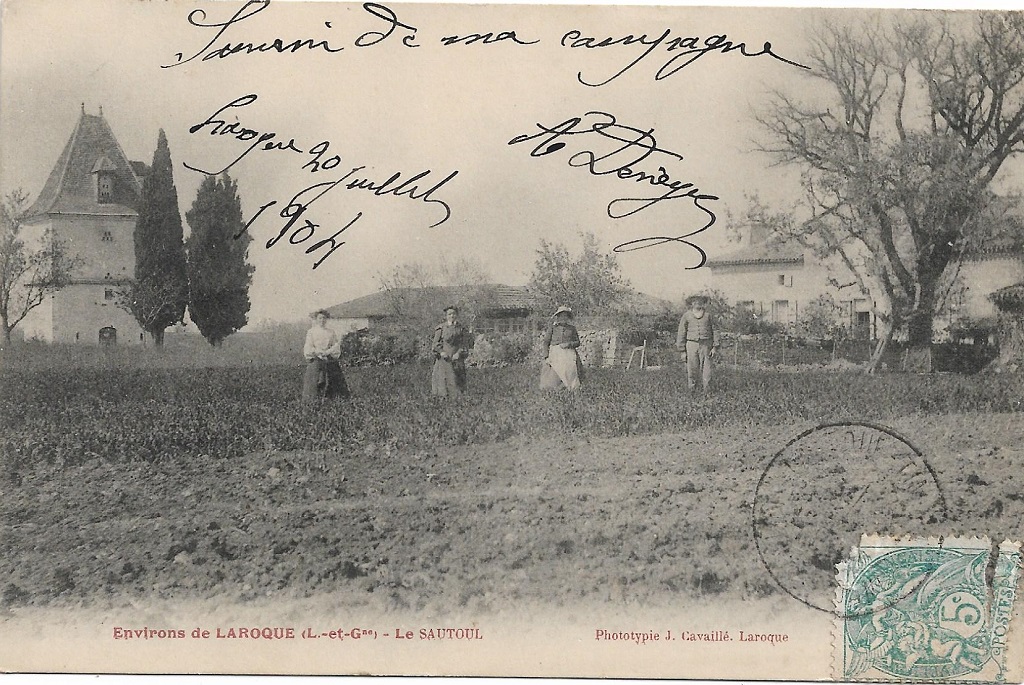 Souvenir de ma campagne
20 juillet
1904
Environs de LAROQUE (L.-et-Gne) - Le SAUTOUL
Phototypie J. Cavaillé. Laroque
5c
POSTES